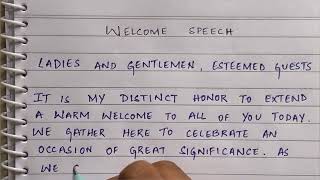 WELCOME SPEECH
LADIES AND GENTLEMEN, ESTEEMED GUESTS
IT IS MY DISTINCT HONOR TO EXTEND
A WARM WELCOME TO ALL OF YOU TODAY.
WE GATHER HERE TO CELEBRATE AN
OCCASION OF GREAT SIGNIFICANCE. AS
WE